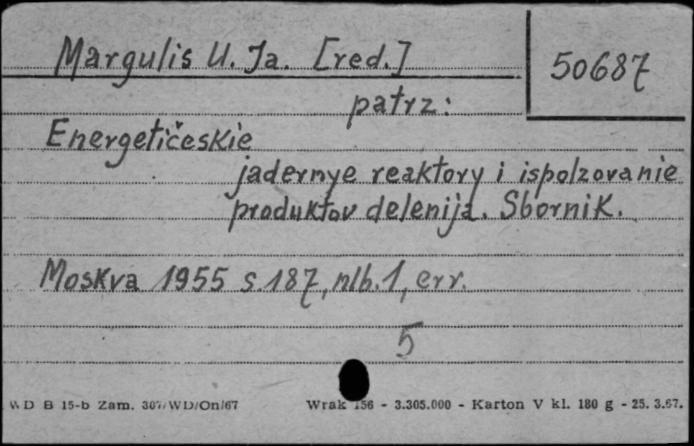 Margulis U. Ja. [red.]
50687
patrz:
Energetičeskie
jadernye reaktory i ispolzovanie
produktov delenija. Sbornik.
Moskva 1955 s. 187, nlb. 1, err.
5
WD B 15-b Zam. 307/WD/On/67 Wrak 156 - 3.305.000 - Karton V kl. 180 g - 25. 3.67.